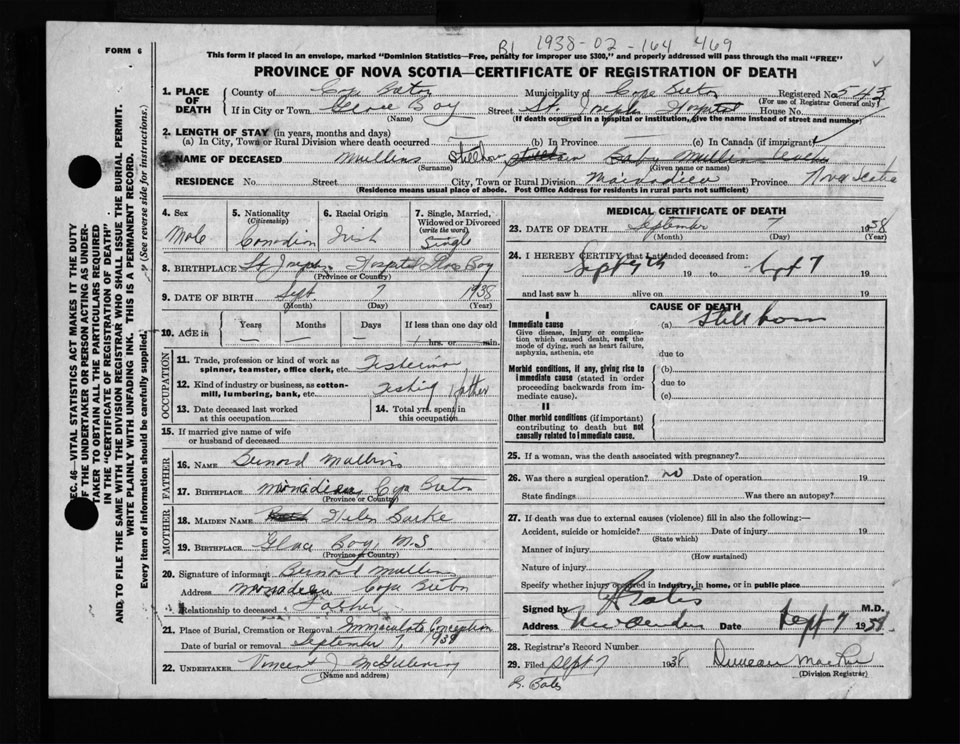 B1 1938-02-164 469
FORM 6
This form if placed in an envelope, marked "Dominion Statistics—Free, penalty for improper use $300," and properly addressed will pass through the mail "FREE"
PROVINCE OF NOVA SCOTIA—CERTIFICATE OF REGISTRATION OF DEATH
SEC. 46—VITAL STATISTICS ACT MAKES IT THE DUTY
OF THE UNDERTAKER OR PERSON ACTING AS UNDER-
TAKER TO OBTAIN ALL THE PARTICULARS REQUIRED
IN THE "CERTIFICATE OF REGISTRATION OF DEATH"
AND, TO FILE THE SAME WITH THE DIVISION REGISTRAR WHO SHALL ISSUE THE BURIAL PERMIT.
WRITE PLAINLY WITH UNFADING INK. THIS IS A PERMANENT RECORD.
Every item of information should be carefully supplied. (See reverse side for instructions.)
1. PLACE OF DEATH
County of Cape Breton Municipality of Cape Breton Registered No. 543
(For use of Registrar General only)
If in City or Town Glace Bay Street St. Josephs Hospital House No.
(Name) (If death occurred in a hospital or institution, give the name instead of street and number)
2. LENGTH OF STAY (in years, months and days)
(a) In City, Town or Rural Division where death occurred (b) In Province (c) In Canada (if immigrant)
3. NAME OF DECEASED Mullins Stillborn Baby Mullins
(Surname) (Given name or names)
RESIDENCE No. Street City, Town or Rural Division Mainadieu Province Nova Scotia
(Residence means usual place of abode. Post Office Address for residents in rural parts not sufficient)
4. Sex Male
5. Nationality (Citizenship) Canadian
6. Racial Origin Irish
7. Single, Married, Widowed or Divorced (write the word) Single
8. BIRTHPLACE St. Josephs Hospital Glace Bay
(Province or Country)
9. DATE OF BIRTH Sept 7 1938
(Month) (Day) (Year)
10. AGE in Years Months Days If less than one day old
— — — hrs. or min.
OCCUPATION
11. Trade, profession or kind of work as spinner, teamster, office clerk, etc. Fisherman
12. Kind of industry or business, as cotton-mill, lumbering, bank, etc. Fishing Father
13. Date deceased last worked at this occupation
14. Total yrs. spent in this occupation
15. If married give name of wife or husband of deceased
FATHER
16. NAME Bernard Mullins
17. BIRTHPLACE Mainadieu Cape Breton
(Province or Country)
MOTHER
18. MAIDEN NAME Helen Burke
19. BIRTHPLACE Glace Bay, N.S.
(Province or Country)
20. Signature of informant Bernard Mullins
Address Mainadieu Cape Breton
Relationship to deceased Father
21. Place of Burial, Cremation or Removal Immaculate Conception
Date of burial or removal September 7, 1938
22. UNDERTAKER Vincent J.
(Name and address)
MEDICAL CERTIFICATE OF DEATH
23. DATE OF DEATH September 7 1938
(Month) (Day) (Year)
24. I HEREBY CERTIFY that I attended deceased from:
Sept 7th 19 to Sept 7 19
and last saw h alive on 19
CAUSE OF DEATH
I
Immediate cause (a) Stillborn
Give disease, injury or complication which caused death, not the mode of dying, such as heart failure, asphyxia, asthenia, etc due to
Morbid conditions, if any, giving rise to immediate cause (stated in order proceeding backwards from immediate cause). (b)
due to
(c)
II
Other morbid conditions (if important) contributing to death but not causally related to immediate cause.
25. If a woman, was the death associated with pregnancy?
26. Was there a surgical operation? no Date of operation 19
State findings Was there an autopsy?
27. If death was due to external causes (violence) fill in also the following:—
Accident, suicide or homicide? Date of injury 19
(State which)
Manner of injury
(How sustained)
Nature of injury
Specify whether injury occurred in industry, in home, or in public place
Signed by M.D.
Address Date Sept 7 1938
28. Registrar's Record Number
29. Filed Sept 7 1938 Duncan
(Division Registrar)